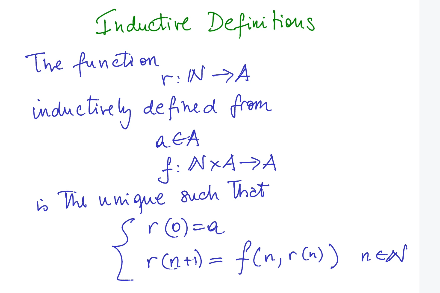 Inductive Definitions
The function
r : ℕ → A
inductively defined from
a ∈ A
f : ℕ × A → A
is the unique such that
r(0) = a
r(n+1) = f(n, r(n)) n ∈ ℕ